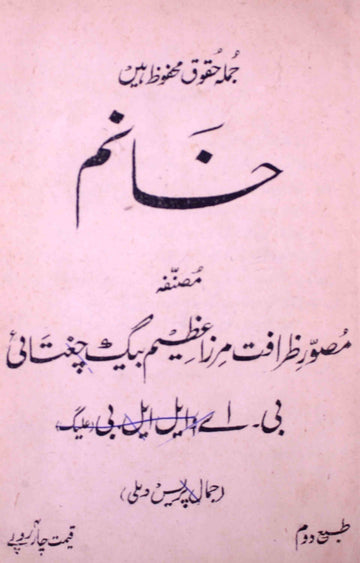 جُملہ حُقوق محفوظ ہیں
خَانم
مُصنّفہ
مُصوّرِ ظرافت مرزا عظیم بیگ چغتائی
بی۔ اے، ایل ایل بی (علیگ)
(جمال پریس دہلی)
طبع دوم
قیمت چار روپے